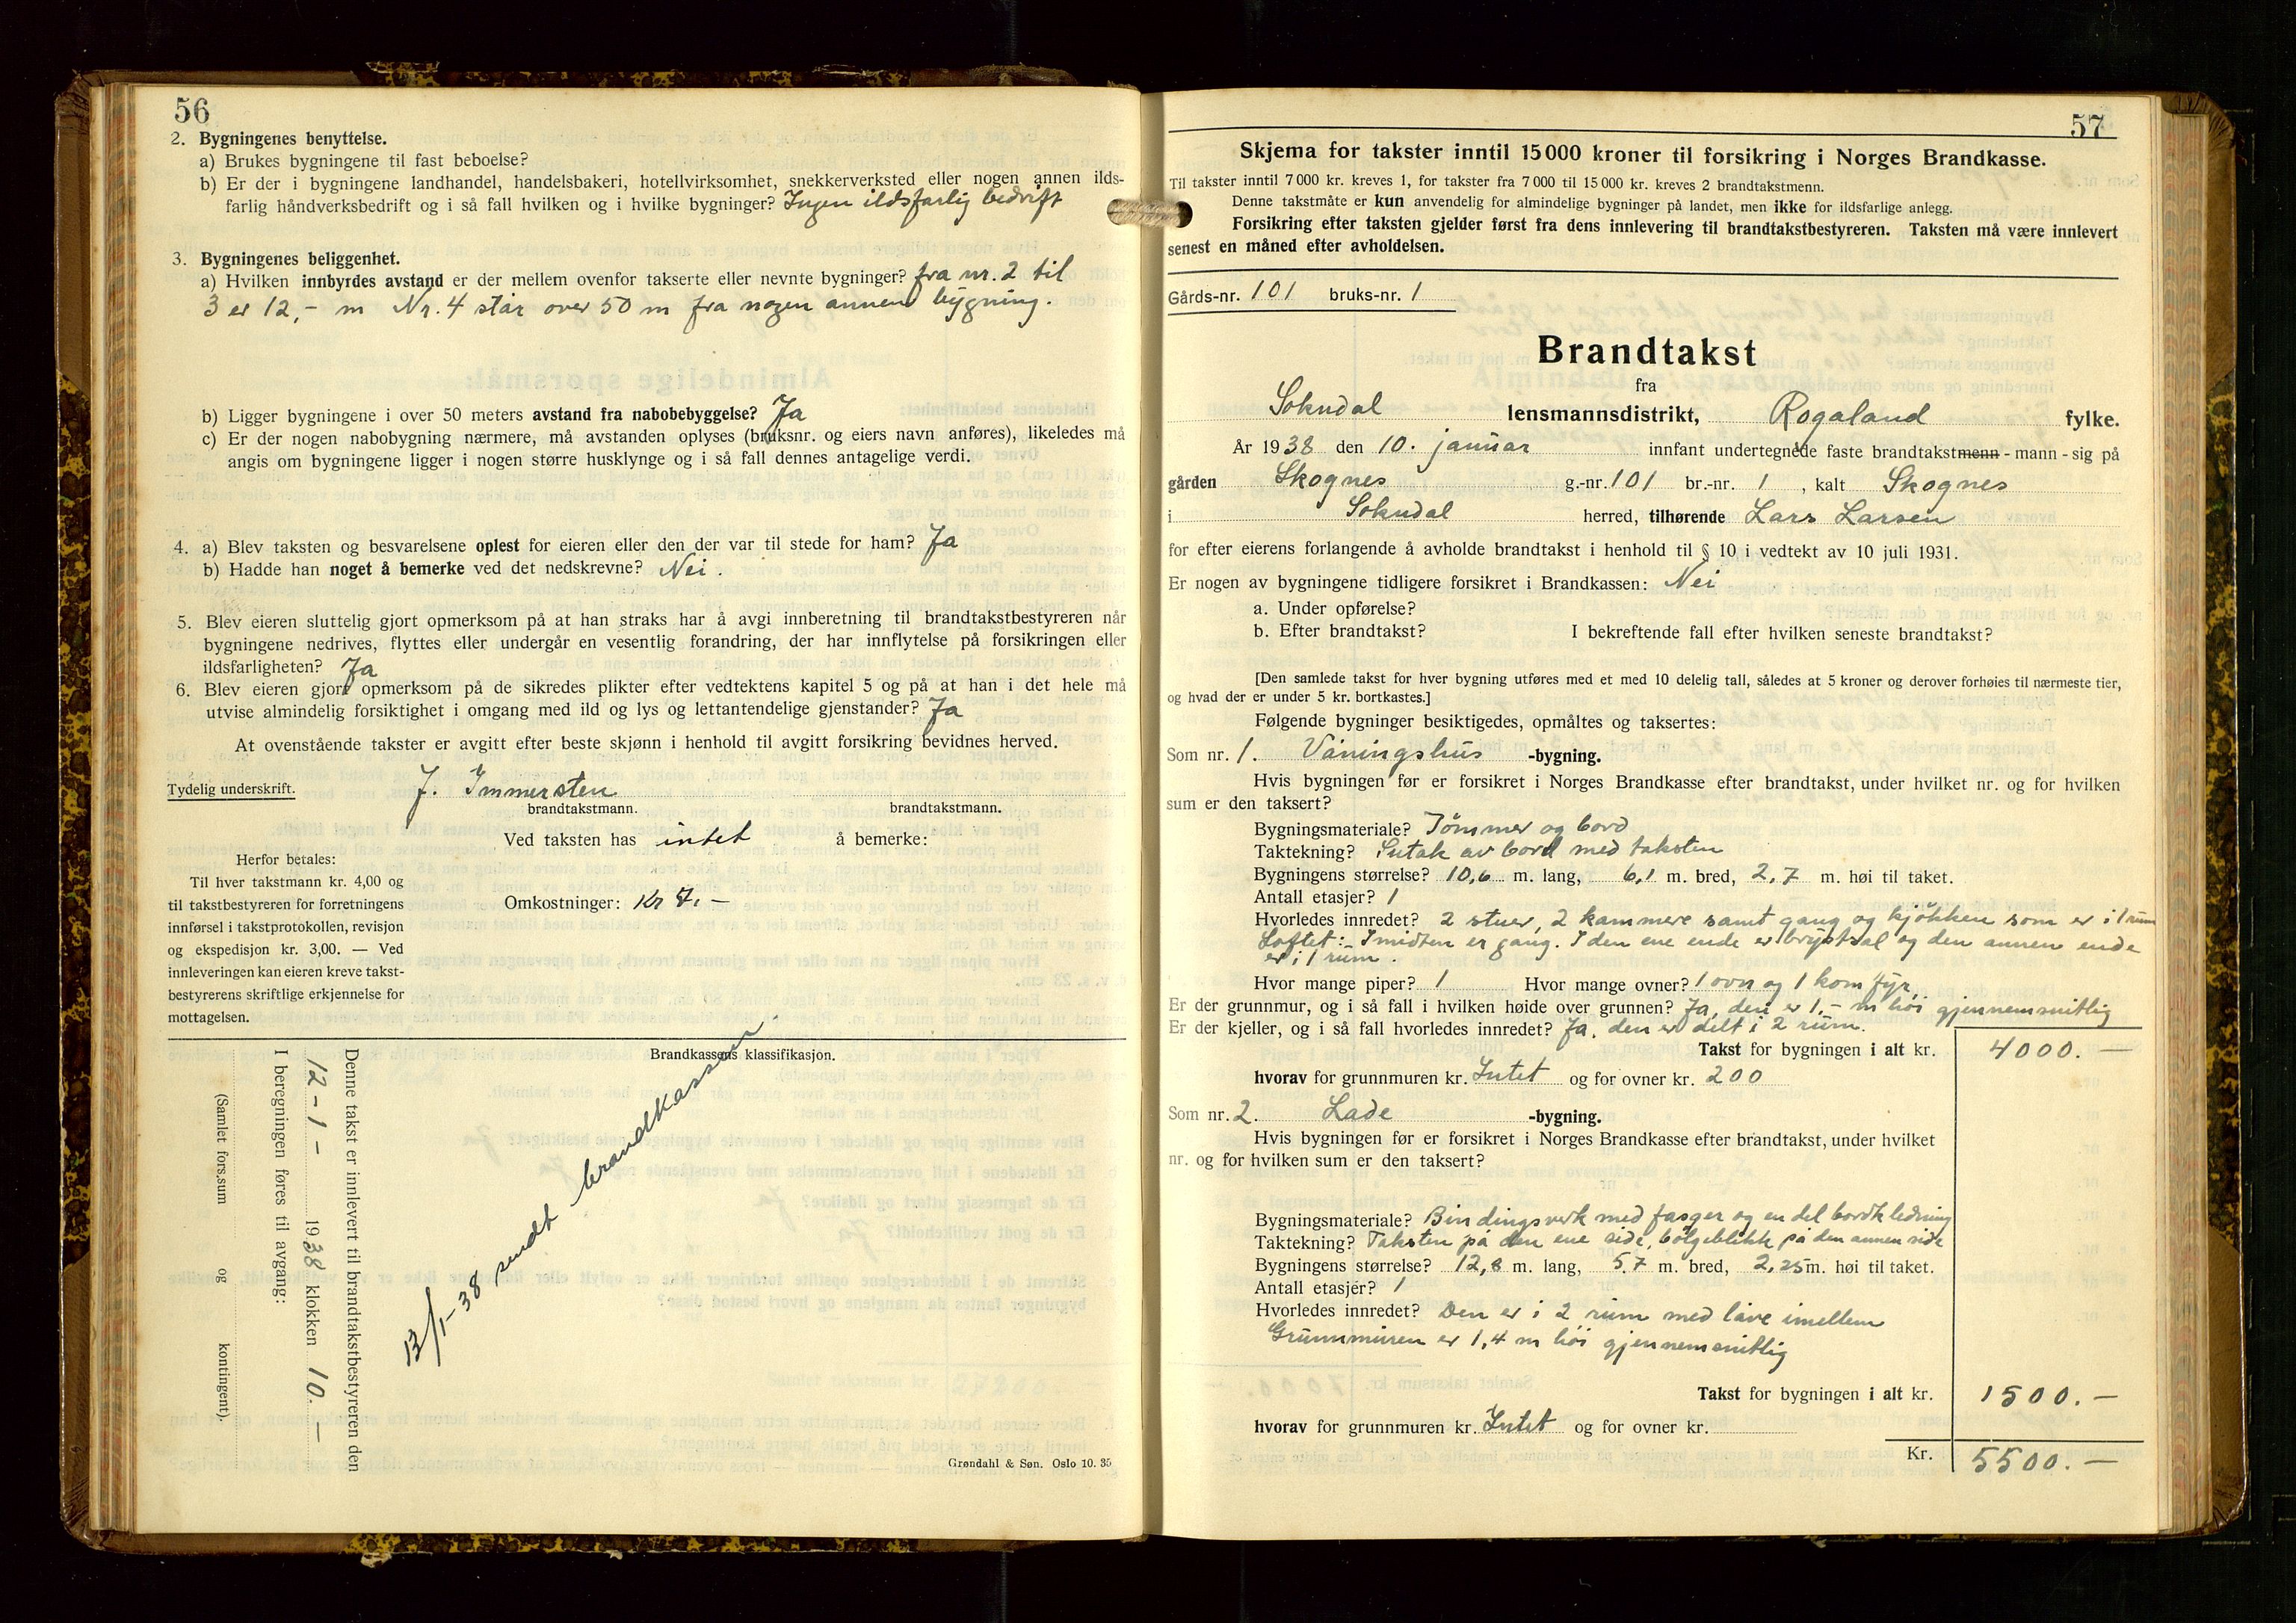 56
2. Bygningenes benyttelse.
a) Brukes bygningene til fast beboelse?
b) Er der i bygningene landhandel, handelsbakeri, hotellvirksomhet, snekkerverksted eller nogen annen ilds-
farlig håndverksbedrift og i så fall hvilken og i hvilke bygninger? Ingen ildsfarlig bedrift
3. Bygningenes beliggenhet.
a) Hvilken innbyrdes avstand er der mellem ovenfor takserte eller nevnte bygninger? fra nr. 2 til
3 er 12,- m Nr. 4 står over 50 m fra nogen annen bygning.
b) Ligger bygningene i over 50 meters avstand fra nabobebyggelse? Ja
c) Er der nogen nabobygning nærmere, må avstanden oplyses (bruksnr. og eiers navn anføres), likeledes må
angis om bygningene ligger i nogen større husklynge og i så fall dennes antagelige verdi.
4. a) Blev taksten og besvarelsene oplest for eieren eller den der var til stede for ham? Ja
b) Hadde han noget å bemerke ved det nedskrevne? Nei.
5. Blev eieren sluttelig gjort opmerksom på at han straks har å avgi innberetning til brandtakstbestyreren når
bygningene nedrives, flyttes eller undergår en vesentlig forandring, der har innflytelse på forsikringen eller
ildsfarligheten? Ja
6. Blev eieren gjort opmerksom på de sikredes plikter efter vedtektens kapitel 5 og på at han i det hele må
utvise almindelig forsiktighet i omgang med ild og lys og lettantendelige gjenstander? Ja
At ovenstående takster er avgitt efter beste skjønn i henhold til avgitt forsikring bevidnes herved.
Tydelig underskrift. J. Immersten
brandtakstmann. brandtakstmann.
Ved taksten has intet å bemerke:
Herfor betales:
Til hver takstmann kr. 4,00 og
til takstbestyreren for forretningens
innførsel i takstprotokollen, revisjon
og ekspedisjon kr. 3,00. — Ved
innleveringen kan eieren kreve takst-
bestyrerens skriftlige erkjennelse for
mottagelsen.
Omkostninger: Kr 7.-
Brandkassens klassifikasjon.
Denne takst er innlevert til brandtakstbestyreren den
12-1- 1938 klokken 10.-
I beregningen føres til avgang:
(Samlet fors.sum og kontingent).
13/1-38 sendt brandkassen.
Grøndahl & Søn. Oslo 10. 35
57
Skjema for takster inntil 15000 kroner til forsikring i Norges Brandkasse.
Til takster inntil 7000 kr. kreves 1, for takster fra 7000 til 15 000 kr. kreves 2 brandtakstmenn.
Denne takstmåte er kun anvendelig for almindelige bygninger på landet, men ikke for ildsfarlige anlegg.
Forsikring efter taksten gjelder først fra dens innlevering til brandtakstbestyreren. Taksten må være innlevert
senest en måned efter avholdelsen.
Gårds-nr. 101 bruks-nr. 1
Brandtakst
fra
Sokndal lensmannsdistrikt, Rogaland fylke.
År 1938 den 10. januar innfant undertegnede faste brandtakstmenn - mann - sig på
gården Skognes g.-nr. 101 br.-nr. 1 , kalt Skognes
i Sokndal herred, tilhørende Lars Larsen
for efter eierens forlangende å avholde brandtakst i henhold til § 10 i vedtekt av 10 juli 1931.
Er nogen av bygningene tidligere forsikret i Brandkassen: Nei
a. Under opførelse?
b. Efter brandtakst? I bekreftende fall efter hvilken seneste brandtakst?
[Den samlede takst for hver bygning utføres med et med 10 delelig tall, således at 5 kroner og derover forhøies til nærmeste tier,
og hvad der er under 5 kr. bortkastes.]
Følgende bygninger besiktigedes, opmåltes og taksertes:
Som nr. 1. Våningshus -bygning.
Hvis bygningen før er forsikret i Norges Brandkasse efter brandtakst, under hvilket nr. og for hvilken
sum er den taksert?
Bygningsmateriale? Tømmer og bord
Taktekning? Sutak av bord med taksten
Bygningens størrelse? 10,6 m. lang, 6,1 m. bred, 2,7 m. høi til taket.
Antall etasjer? 1
Hvorledes innredet? 2 stuer, 2 kammere samt gang og kjøkken som er i 1 rum
Loftet:- I midten er gang. I den ene ende er brystsal og den annen ende
er i 1 rum.
Hvor mange piper? 1 Hvor mange ovner? 1 ovn og 1 komfyr
Er der grunnmur, og i så fall i hvilken høide over grunnen? Ja, den er 1,- m høi gjennemsnitlig
Er der kjeller, og i så fall hvorledes innredet? Ja, den er delt i 2 rum.
Takst for bygningen i alt kr. 4000.-
hvorav for grunnmuren kr. Intet og for ovner kr. 200
Som nr. 2. Lade -bygning.
Hvis bygningen før er forsikret i Norges Brandkasse efter brandtakst, under hvilket
nr. og for hvilken sum er den taksert?
Bygningsmateriale? Bindingsverk med fasger og en del bordkledning
Taktekning? Taksten på den ene side, bølgeblikk på den annen side
Bygningens størrelse? 12,8 m. lang, 5,7 m. bred, 2,25 m. høi til taket.
Antall etasjer? 1
Hvorledes innredet? Den er i 2 rum med låve imellem
Grunnmuren er 1,4 m høi gjennemsnitlig
Takst for bygningen i alt kr. 1500.-
hvorav for grunnmuren kr. Intet og for ovner kr.
Kr. 5500.-